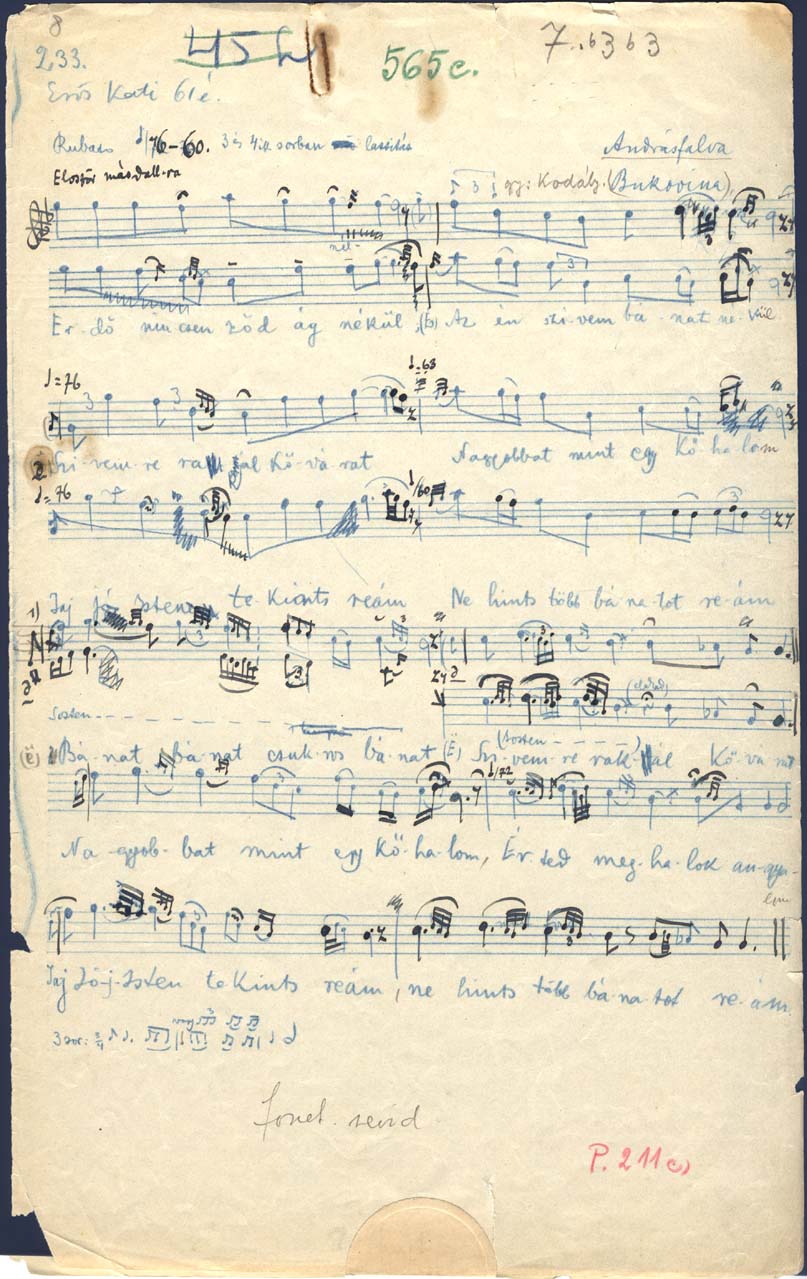 8
233.
45
565c.
7..6363
Erős Kati 61é.
Rubato 76-60. 3 és 4-ik sorban lassítás
Andrásfalva
gy: Kodály. (Bukovina)
3
Er-dő nincsen zöd ág nékül, Az én szi-vem bá-nat ne-kül
=76
=63
3
Szi-vem-re rak-jál Kő-vá-rat Nagyobbat mint egy Kő-ha-lom
=76
/60
3
Jaj jó Isten te-kints reám Ne hints több bá-na-tot re-ám
sosten
Bá-nat bá-nat csuk-ros bá-nat (É) Szi-vem-re rak-jál Kő-vá-rat
(sosten)
/72
Na-gyob-bat mint egy Kő-ha-lom, Ér-ted meg-ha-lok an-gya-lom
Jaj Jó-j-Isten te Kints reám, ne hints több bá-na-tot re-ám.
3 sor: 3/4 vagy
fonet. revid
P. 211c)